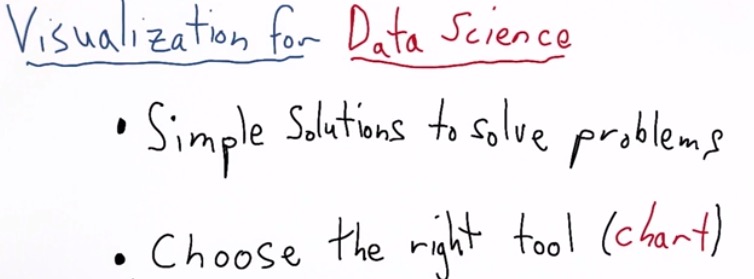 Visualization for Data Science
• Simple Solutions to solve problems
• Choose the right tool (chart)